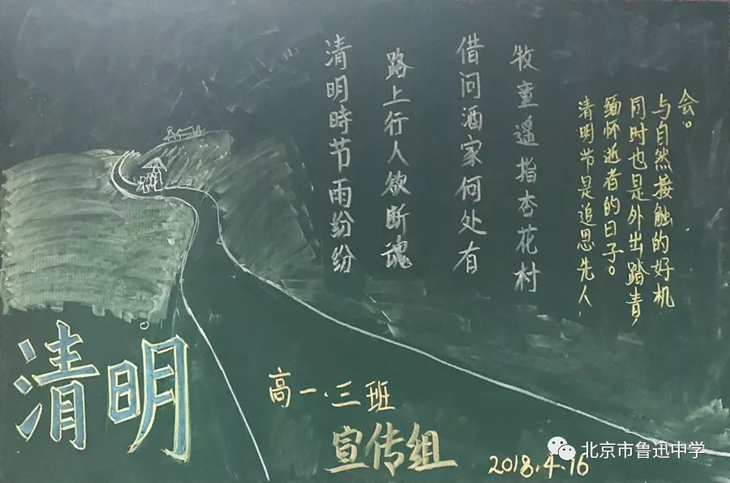 清明時节雨纷纷
路上行人欲断魂
借问酒家何处有
牧童遥指杏花村
清明节是追思先人，
缅怀逝者的日子。
同时也是外出踏青，
与自然接触的好机
会。
清明
高一·三班
宣传组
2018.4.16
北京市鲁迅中学